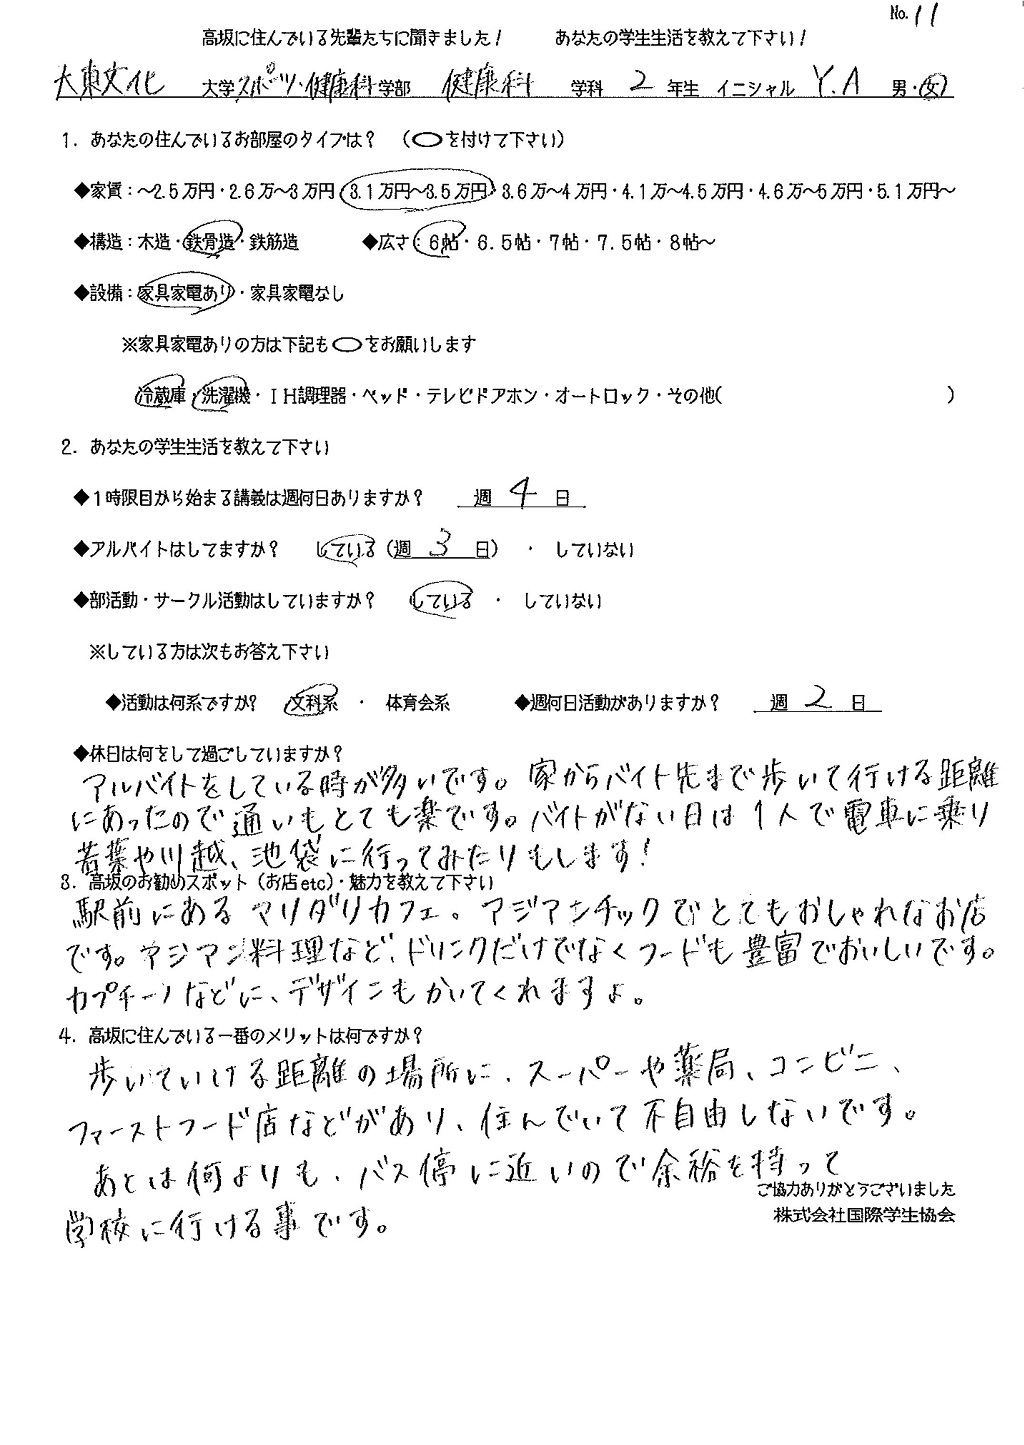 No. 11
高坂に住んでいる先輩たちに聞きました！　あなたの学生生活を教えて下さい！
大東文化 大学 スポーツ・健康科 学部 健康科 学科 2 年生 イニシャル Y.A 男・女
1. あなたの住んでいるお部屋のタイプは？ （○を付けて下さい）
◆家賃：～2.5万円・2.6万～3万円・3.1万円～3.5万円・3.6万～4万円・4.1万～4.5万円・4.6万～5万円・5.1万円～
◆構造：木造・鉄骨造・鉄筋造　◆広さ：6帖・6.5帖・7帖・7.5帖・8帖～
◆設備：家具家電あり・家具家電なし
※家具家電ありの方は下記も○をお願いします
冷蔵庫・洗濯機・IH調理器・ベッド・テレビドアホン・オートロック・その他(　)
2. あなたの学生生活を教えて下さい
◆1時限目から始まる講義は週何日ありますか？　週 4 日
◆アルバイトはしてますか？　している（週 3 日）・していない
◆部活動・サークル活動はしていますか？　している・していない
※している方は次もお答え下さい
◆活動は何系ですか？　文科系・体育会系　◆週何日活動がありますか？　週 2 日
◆休日は何をして過ごしていますか？
アルバイトをしている時が多いです。家からバイト先まで歩いて行ける距離
にあったので通いもとても楽です。バイトがない日は1人で電車に乗り
若葉や川越、池袋に行ってみたりもします！
3. 高坂のお勧めスポット（お店etc）・魅力を教えて下さい
駅前にあるマリダリカフェ。アジアンチックでとてもおしゃれなお店
です。アジアン料理など、ドリンクだけでなくフードも豊富でおいしいです。
カプチーノなどに、デザインもかいてくれますよ。
4. 高坂に住んでいる一番のメリットは何ですか？
歩いていける距離の場所に、スーパーや薬局、コンビニ、
ファーストフード店などがあり、住んでいて不自由しないです。
あとは何よりも、バス停に近いので余裕を持って
ご協力ありがとうございました
学校に行ける事です。
株式会社国際学生協会